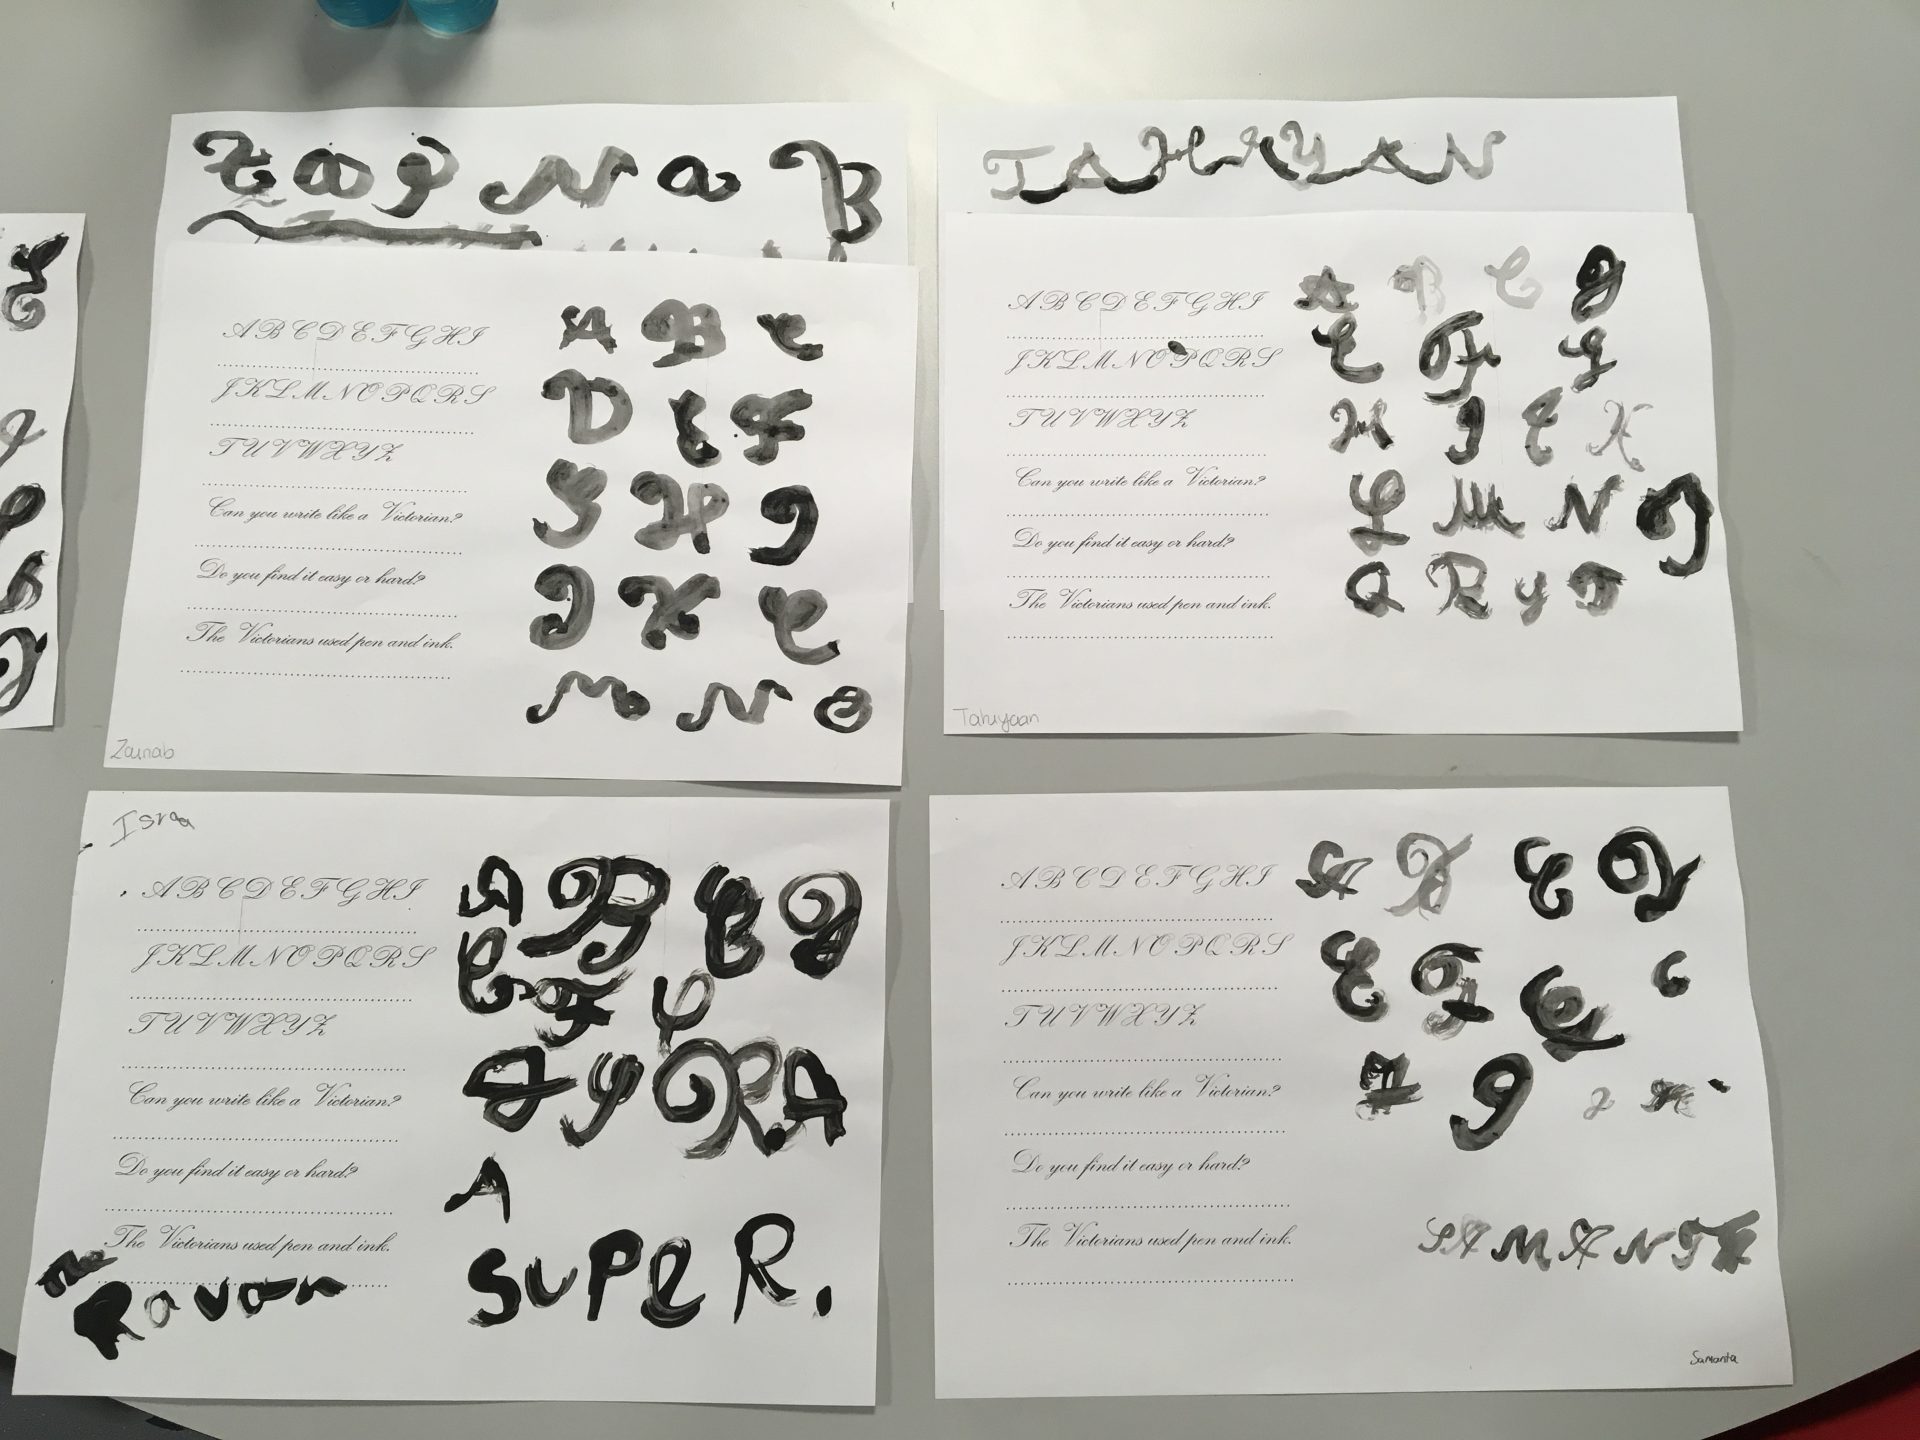 ZaiNaB
A B C D E F G H I
J K L M N O P Q R S
T U V W X Y Z
Can you write like a Victorian?
Do you find it easy or hard?
The Victorians used pen and ink.
A B C
D E F
G H I
J K L
M N O
Zainab
TAHIYAN
A B C D E F G H I
J K L M N O P Q R S
T U V W X Y Z
Can you write like a Victorian?
Do you find it easy or hard?
The Victorians used pen and ink.
A B C D
E F G
H I J K
L M N O
Q R
Tahiyaan
Israa
A B C D E F G H I
J K L M N O P Q R S
T U V W X Y Z
Can you write like a Victorian?
Do you find it easy or hard?
The Victorians used pen and ink.
A B C D
E F G
I S R A
A
SUPER.
The
Ravan
A B C D E F G H I
J K L M N O P Q R S
T U V W X Y Z
Can you write like a Victorian?
Do you find it easy or hard?
The Victorians used pen and ink.
A B C D
E F G
H I
SAMANTA
Samanta